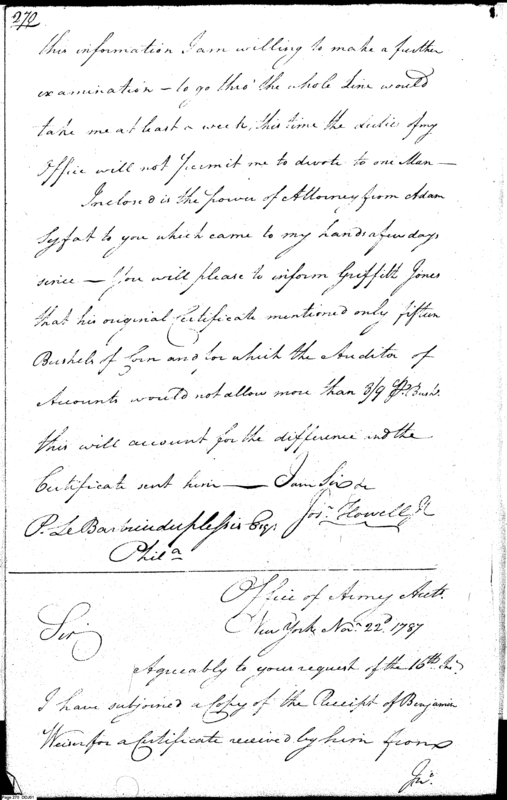 270
this information I am willing to make a further
examination – to go thro' the whole Line would
take me at least a week, this time the duties of my
Office will not permit me to devote to one Man –
Inclosed is the power of Attorney from Adam
Syfat to you which came to my hands a few days
since – You will please to inform Griffith Jones
that his original Certificate mentioned only fifteen
Bushels of Corn and for which the Auditor of
Accounts would not allow more than 3/9 Pr. Bushl.
this will account for the difference and the
Certificate sent him – I am Sir &c
P. Le Barbier duplessis Esqr. Jos. Howell Jr
Phila
Office of Army Acctts.
Sir New York Nov. 22d. 1787
Agreeably to your request of the 16th. Inst.
I have subjoined a Copy of the Receipt of Benjamin
Weiser for a Certificate received by him from
Jno.